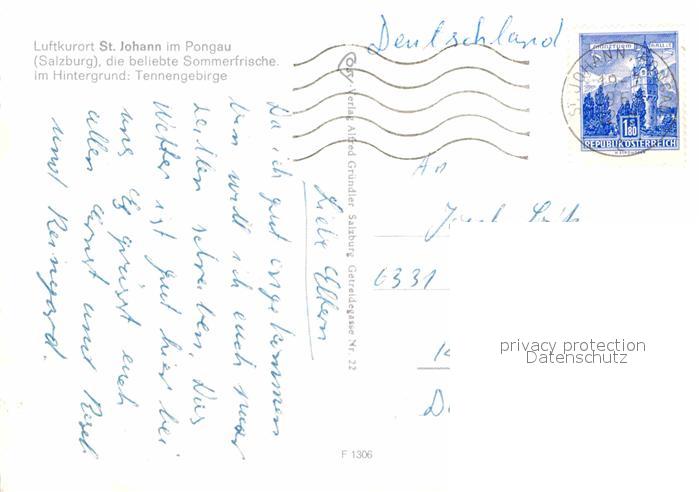 Luftkurort St. Johann im Pongau
(Salzburg), die beliebte Sommerfrische.
im Hintergrund: Tennengebirge
Deutschland
ST. JOHANN
1.80
REPUBLIK ÖSTERREICH
Verlag Alfred Gründler Salzburg Getreidegasse Nr. 22
Liebe Eltern
Da ich gut angekommen
bin will ich euch paar
Zeilen schreiben. Das
Wetter ist gut hier bei
uns. Es grüsst euch
allen Ernst und Resl
und Reingard.
An
6331
F 1306
privacy protection
Datenschutz